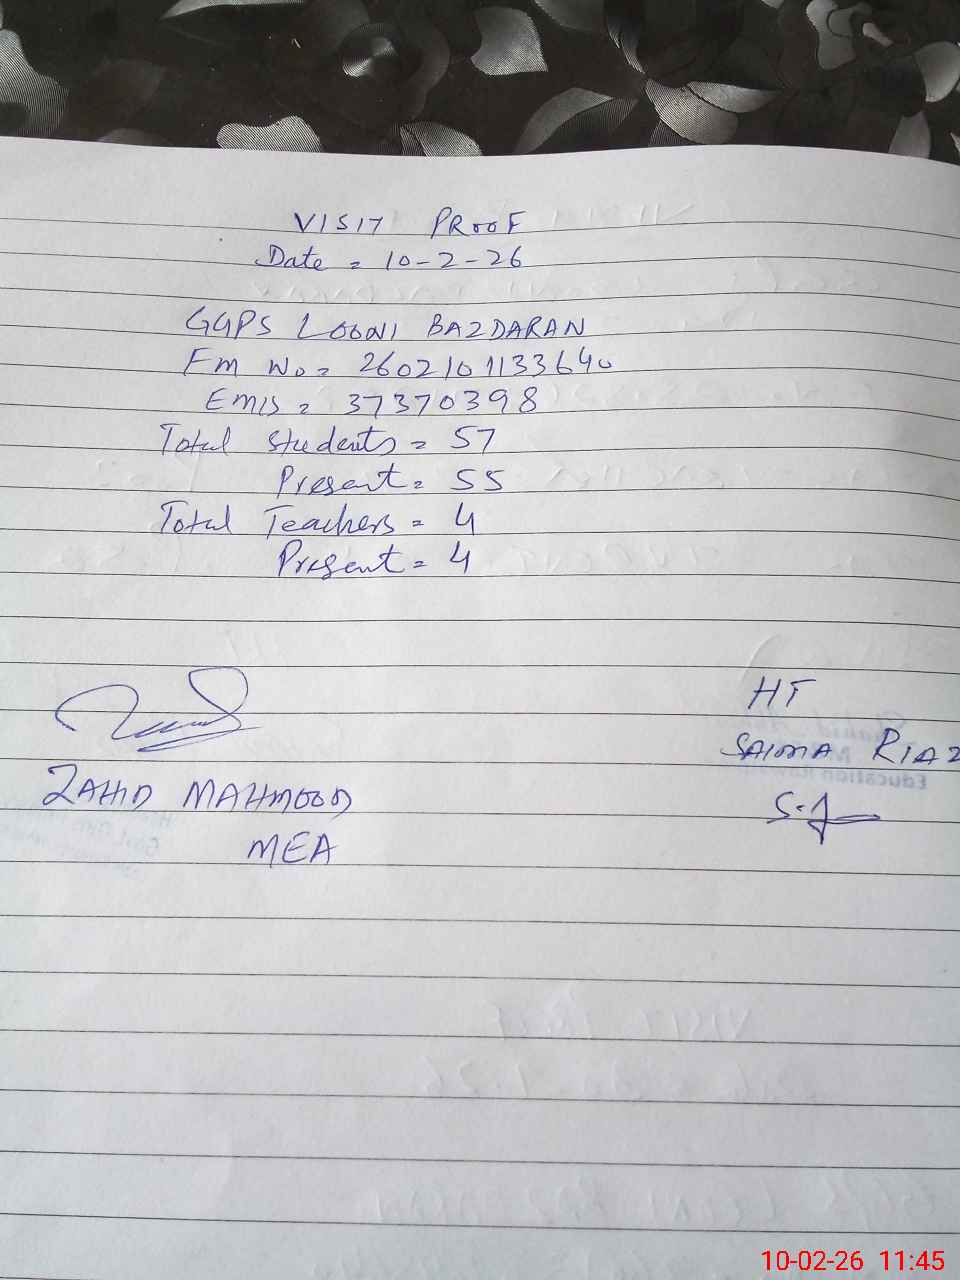 VISIT PROOF
Date = 10-2-26
GGPS LOONI BAZDARAN
FM No = 2602101133640
EMIS = 37370398
Total Students = 57
Present = 55
Total Teachers = 4
Present = 4
HT
SAIMA RIAZ
ZAHID MAHMOOD
MEA
10-02-26 11:45